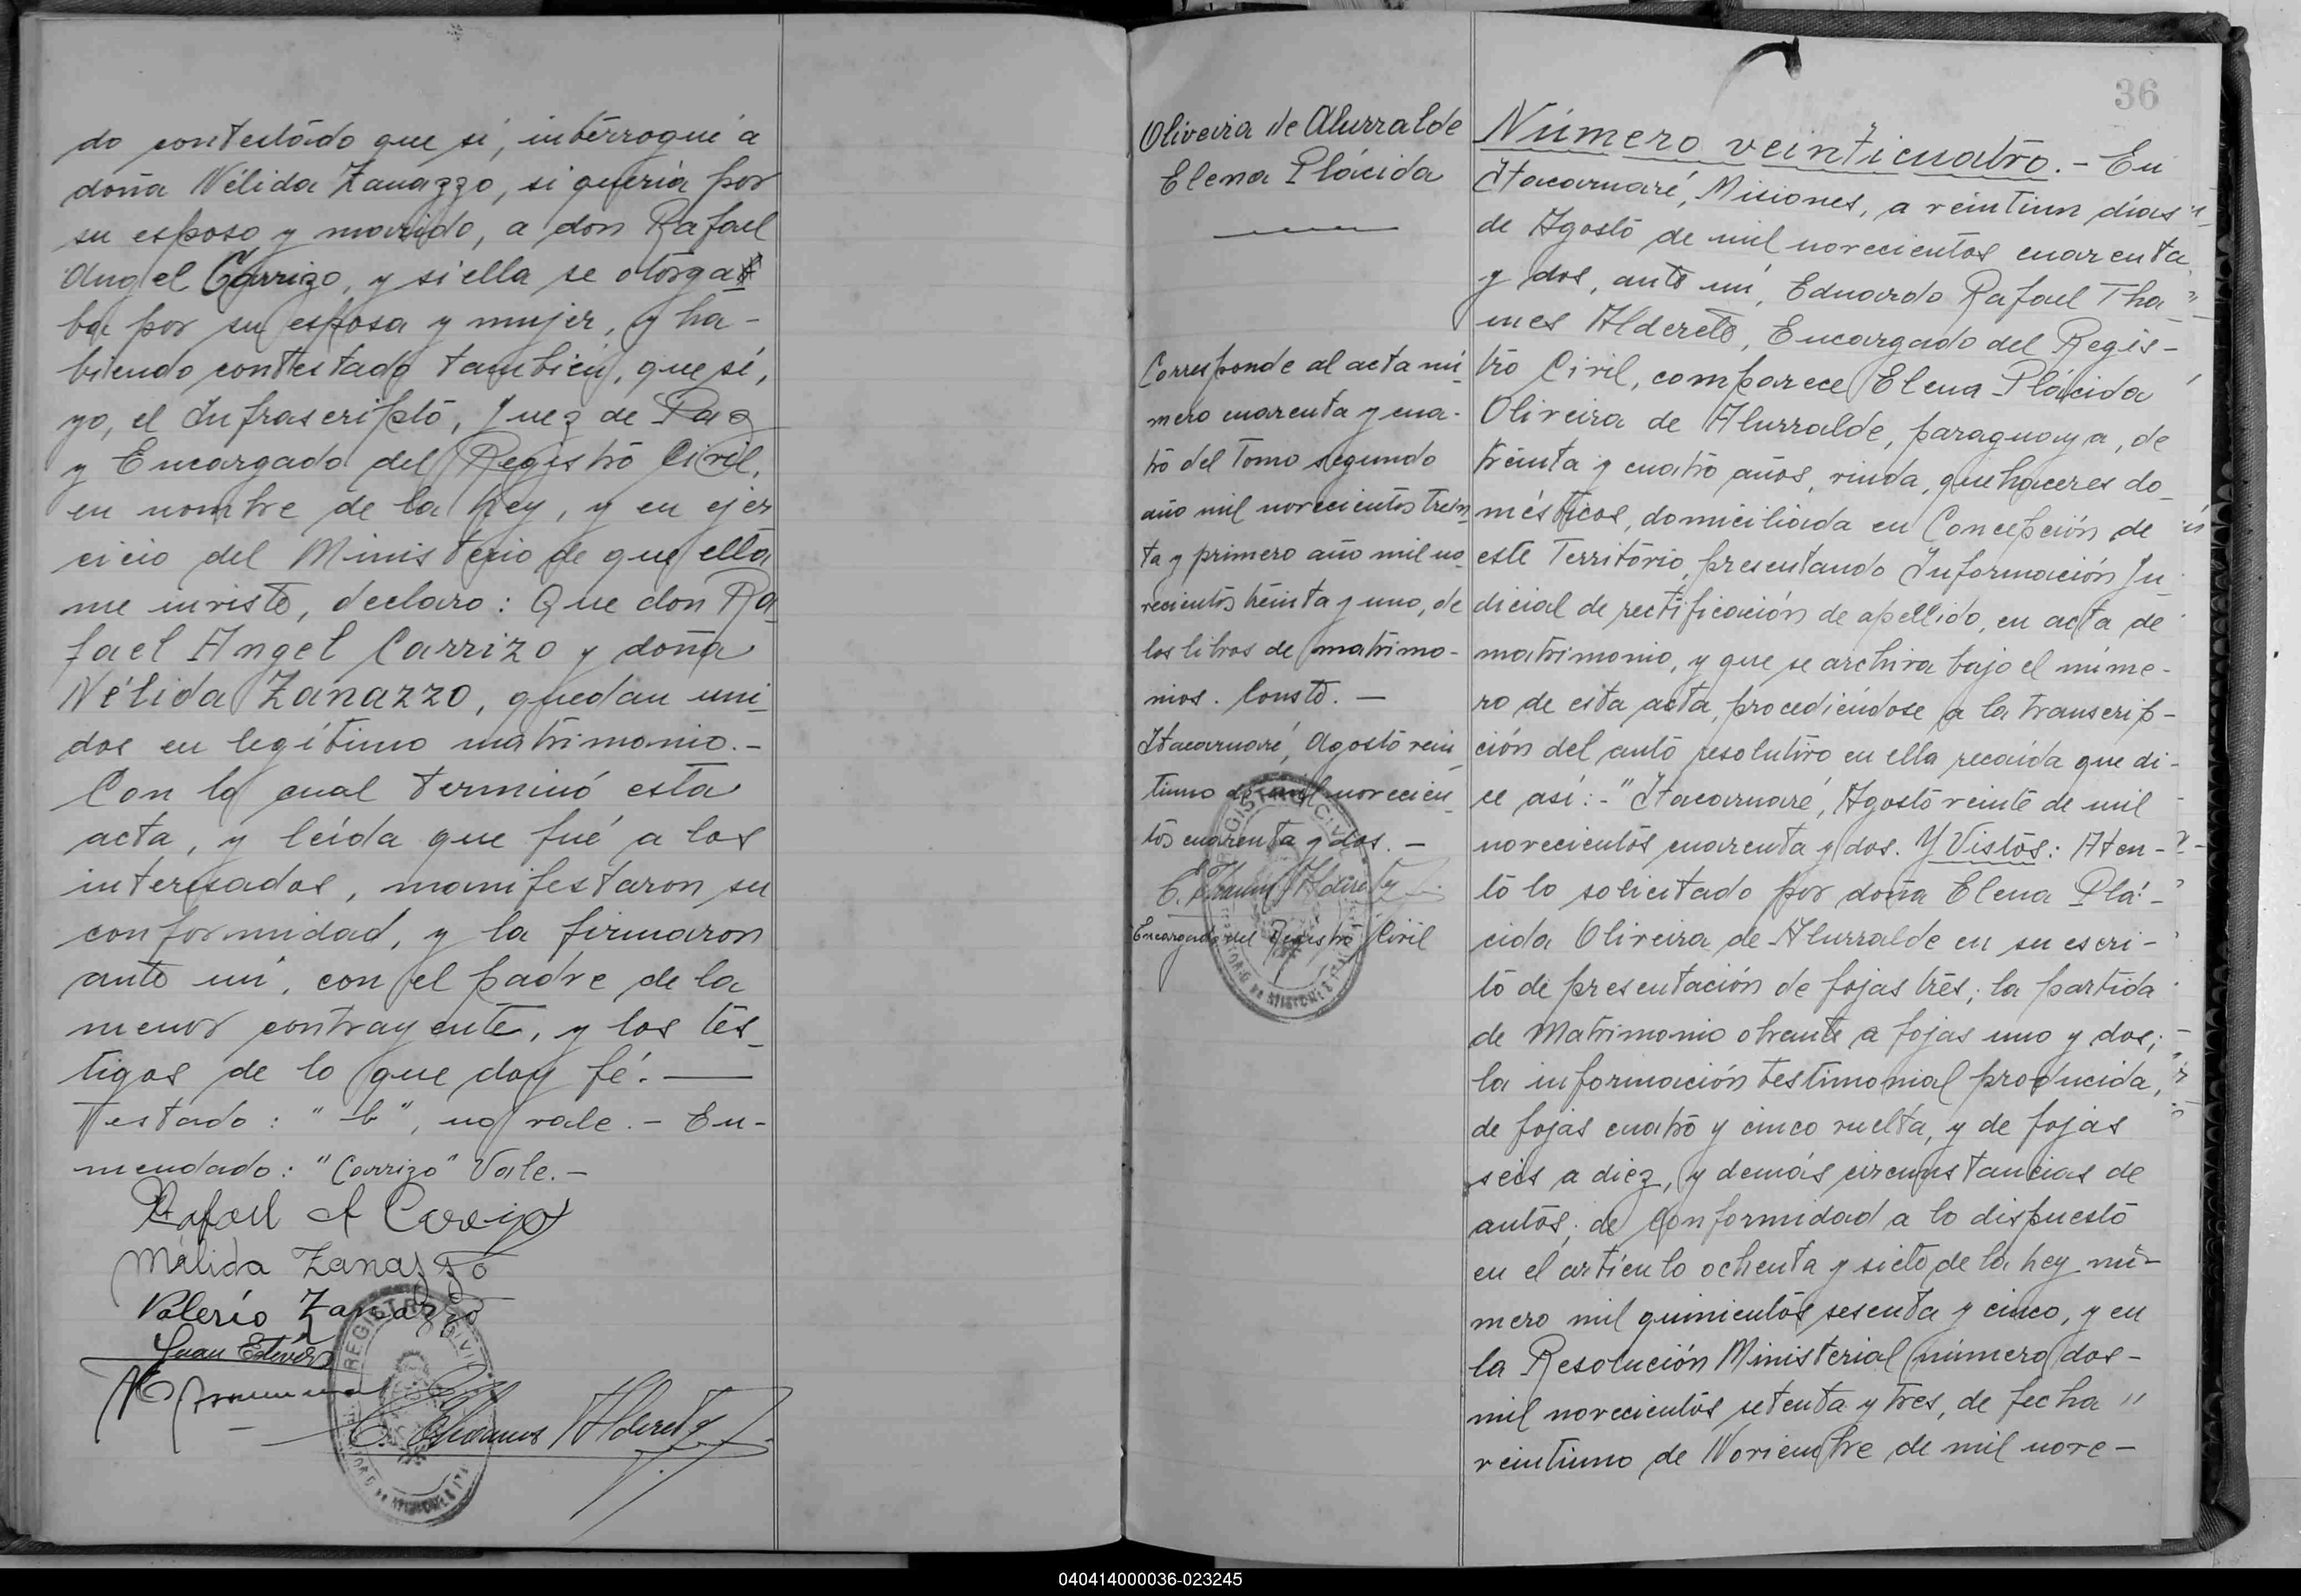 do contestado que sí, interrogué a
doña Nélida Zanazzo, si quería por
su esposo y marido, a don Rafael
Angel Carrizo, y si ella se otorga
ba por su esposa y mujer, y ha-
biendo contestado también, que sí,
yo, el Infrascripto, Juez de Paz
y Encargado del Registro Civil,
en nombre de la Ley, y en ejer
cicio del Ministerio de que ella
me inviste, declaro: Que don Ra
fael Angel Carrizo y doña
Nélida Zanazzo, quedan uni
dos en legítimo matrimonio.-
Con lo cual terminó esta
acta, y leída que fué a los
interesados, manifestaron su
conformidad, y la firmaron
ante mí, con el padre de la
menor contrayente, y los tes
tigos de lo que doy fé.—
Testado: "b", no vale.- En-
mendado: "Carrizo" Vale.-
Rafael A Carrizo
Nélida Zanazzo
Valerio Zanazzo
Juan Esteves
E. Thames Alderete
REGISTRO CIVIL
36
Oliveira de Alurralde
Elena Plácida
Corresponde al acta nú
mero cuarenta y cua-
tro del Tomo segundo
año mil novecientos trein
ta y primero año mil no
vecientos treinta y uno, de
los libros de matrimo-
nios. Conste.—
Itacaruaré, Agosto vein
tiuno de mil novecien
tos cuarenta y dos.—
E. Thames Alderete
Encargado del Registro Civil
REGISTRO CIVIL
Número veinticuatro.- En
Itacaruaré, Misiones, a veintiun días
de Agosto de mil novecientos cuarenta
y dos, ante mí, Eduardo Rafael Tha
mes Alderete, Encargado del Regis-
tro Civil, comparece Elena Plácida
Oliveira de Alurralde, paraguaya, de
treinta y cuatro años, viuda, quehaceres do-
mésticos, domiciliada en Concepción de
este Territorio, presentando Información Ju
dicial de rectificación de apellido, en acta de
matrimonio, y que se archiva bajo el núme-
ro de esta acta, procediéndose a la transcrip-
ción del auto resolutivo en ella recaída que di-
ce así:-"Itacaruaré, Agosto veinte de mil
novecientos cuarenta y dos. Y Vistos: Aten-
to lo solicitado por doña Elena Plá-
cida Oliveira de Alurralde en su escri-
to de presentación de fojas tres; la partida
de Matrimonio obrante a fojas uno y dos;
la información testimonial producida,
de fojas cuatro y cinco vuelta, y de fojas
seis a diez, y demás circunstancias de
autos; de conformidad a lo dispuesto
en el artículo ochenta y siete de la Ley nú-
mero mil quinientos sesenta y cinco, y en
la Resolución Ministerial número dos-
mil novecientos setenta y tres, de fecha "
veintiuno de Noviembre de mil nove-
040414000036-023245